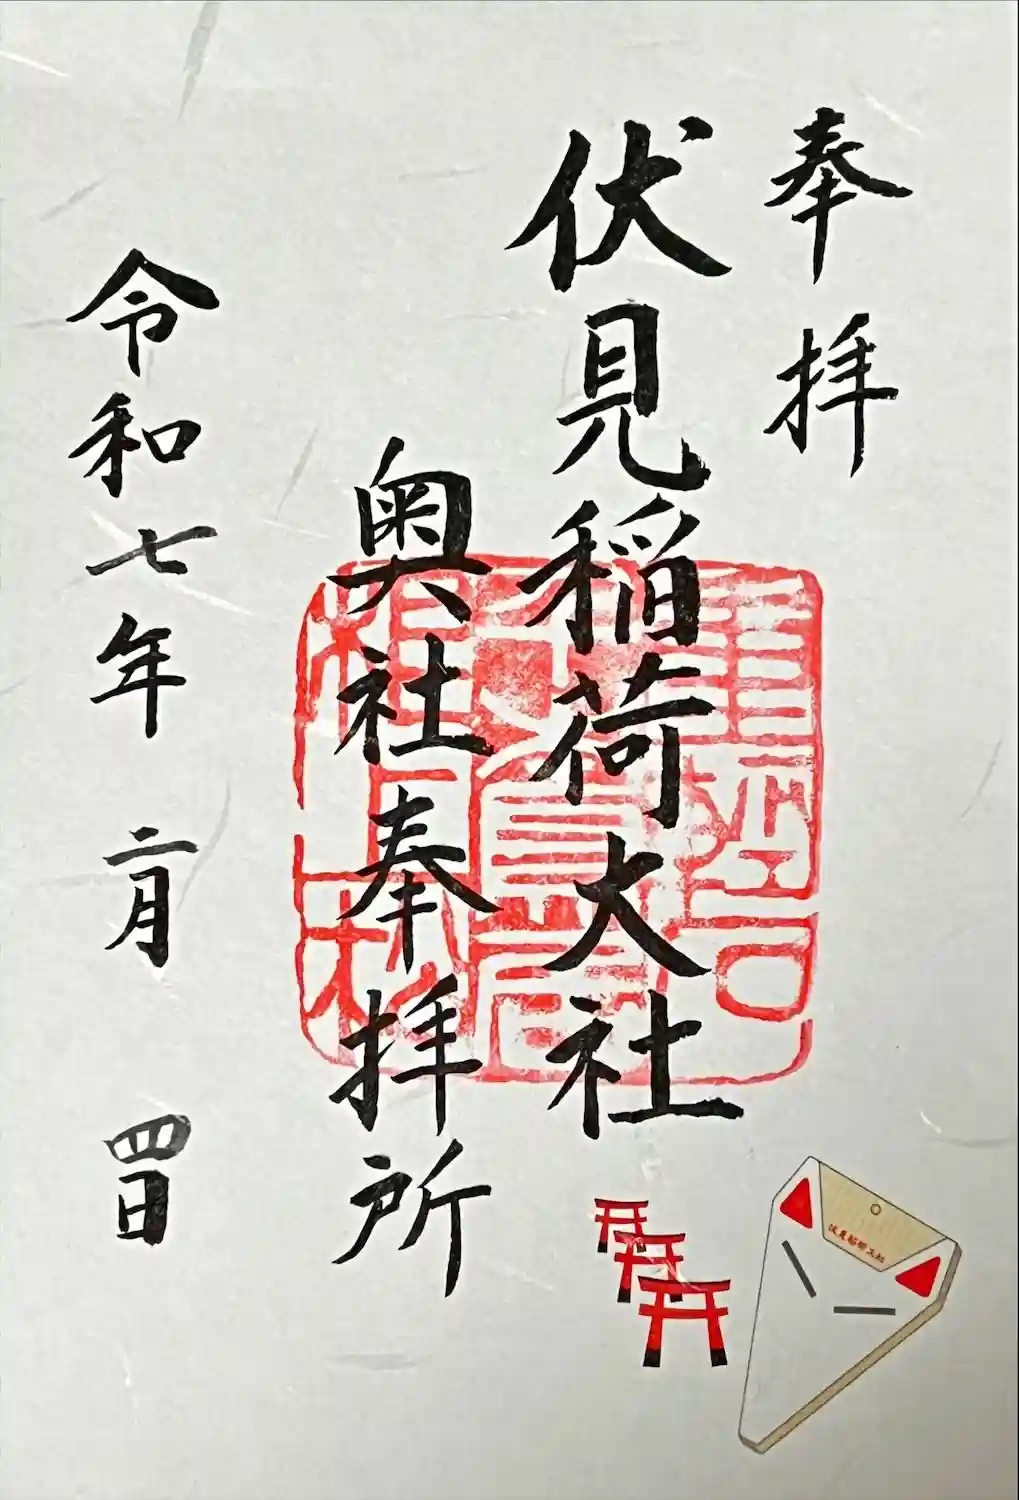 奉拝
伏見稲荷大社
奥社奉拝所
令和七年二月四日
伏見稲荷大社